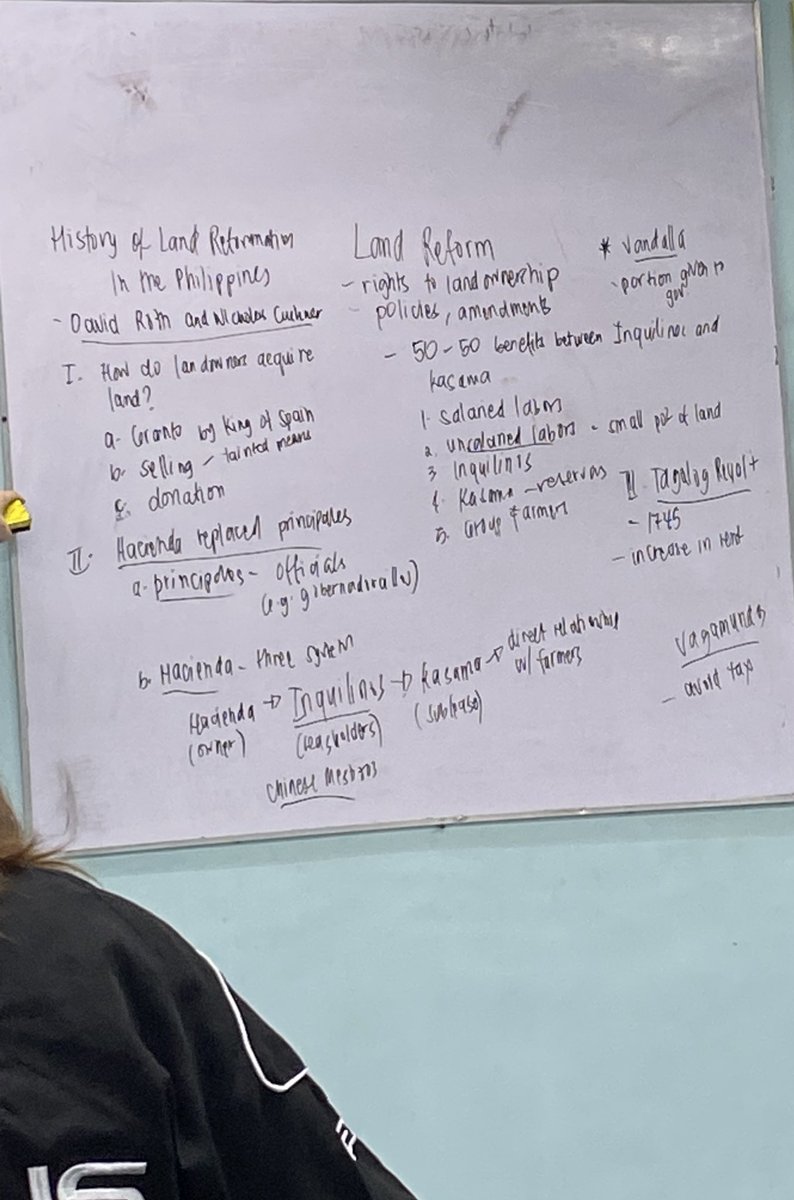 History of Land Reformation
In the Philippines
- David Roth and Nicholas Cushner
I. How do landowners acquire
land?
a. Grants by king of Spain
b. selling / tainted means
c. donation
II. Hacienda replaced principales
a. principales - officials
(e.g. gobernadorcillo)
b. Hacienda - three system
Hacienda → Inquilinos → kasama → direct relationship
w/ farmers
(owner) (leaseholders) (sublease)
Chinese Mestizos
Land Reform
- rights to land ownership
- policies, amendments
- 50-50 benefits between Inquilinos and
kasama
1. salaried labors
2. unsalaried labors - small pot of land
3 Inquilinos
4. Kasama - reserves
5. Group farmers
* Vandalla
- portion given to
gov.
II. Tagalog Revolt
- 1745
- increase in rent
Vagamundo
- avoid tax
IS